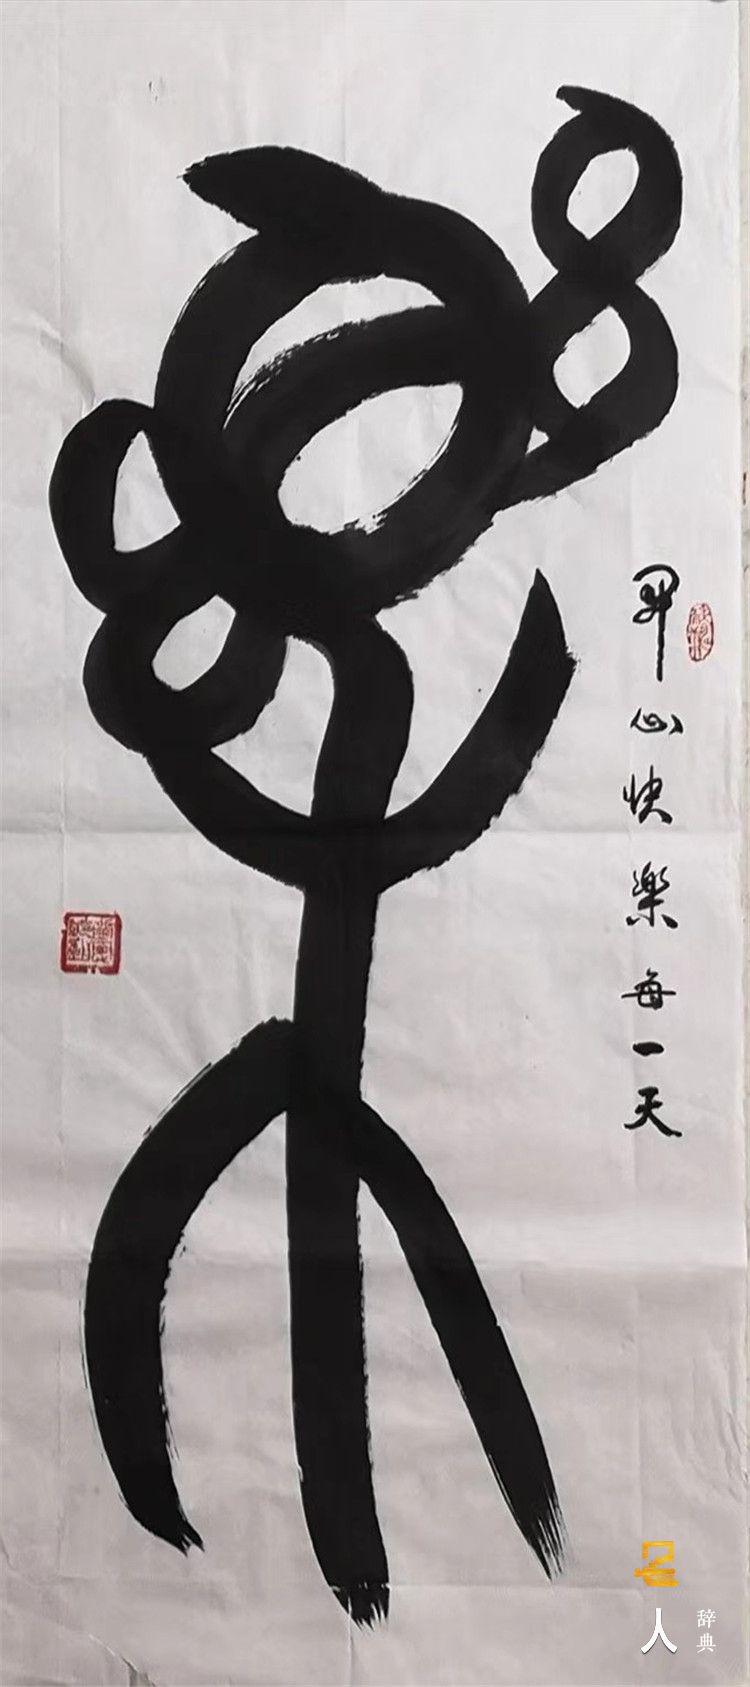 樂
開心快樂每一天
名人
辞典